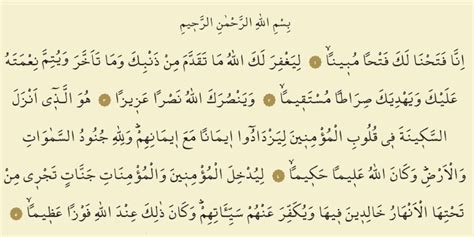 بِسْمِ اللهِ الرَّحْمٰنِ الرَّحٖيمِ
اِنَّا فَتَحْنَا لَكَ فَتْحًا مُبٖينًاۙ ﴿١﴾ لِيَغْفِرَ لَكَ اللهُ مَا تَقَدَّمَ مِنْ ذَنْبِكَ وَمَا تَاَخَّرَ وَيُتِمَّ نِعْمَتَهُ
عَلَيْكَ وَيَهْدِيَكَ صِرَاطًا مُسْتَقٖيمًاۙ ﴿٢﴾ وَيَنْصُرَكَ اللهُ نَصْرًا عَزٖيزًا ﴿٣﴾ هُوَ الَّذٖٓى اَنْزَلَ
السَّكٖينَةَ فٖى قُلُوبِ الْمُؤْمِنٖينَ لِيَزْدَادُٓوا اٖيمَانًا مَعَ اٖيمَانِهِمْۜ وَلِلّٰهِ جُنُودُ السَّمٰوَاتِ
وَالْاَرْضِۜ وَكَانَ اللهُ عَلٖيمًا حَكٖيمًاۙ ﴿٤﴾ لِيُدْخِلَ الْمُؤْمِنٖينَ وَالْمُؤْمِنَاتِ جَنَّاتٍ تَجْرٖى مِنْ
تَحْتِهَا الْاَنْهَارُ خَالِدٖينَ فٖيهَا وَيُكَفِّرَ عَنْهُمْ سَيِّـَٔاتِهِمْۜ وَكَانَ ذٰلِكَ عِنْدَ اللهِ فَوْزًا عَظٖيمًاۙ ﴿٥﴾